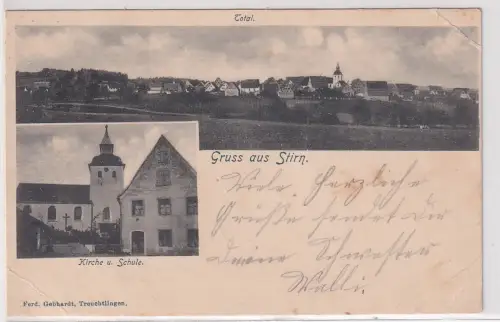 Total.
Gruss aus Stirn.
Viele Herzliche
Grüße sendet Dir
deine Schwester
Walli.
Kirche u. Schule.
Ferd. Gebhardt, Treuchtlingen.